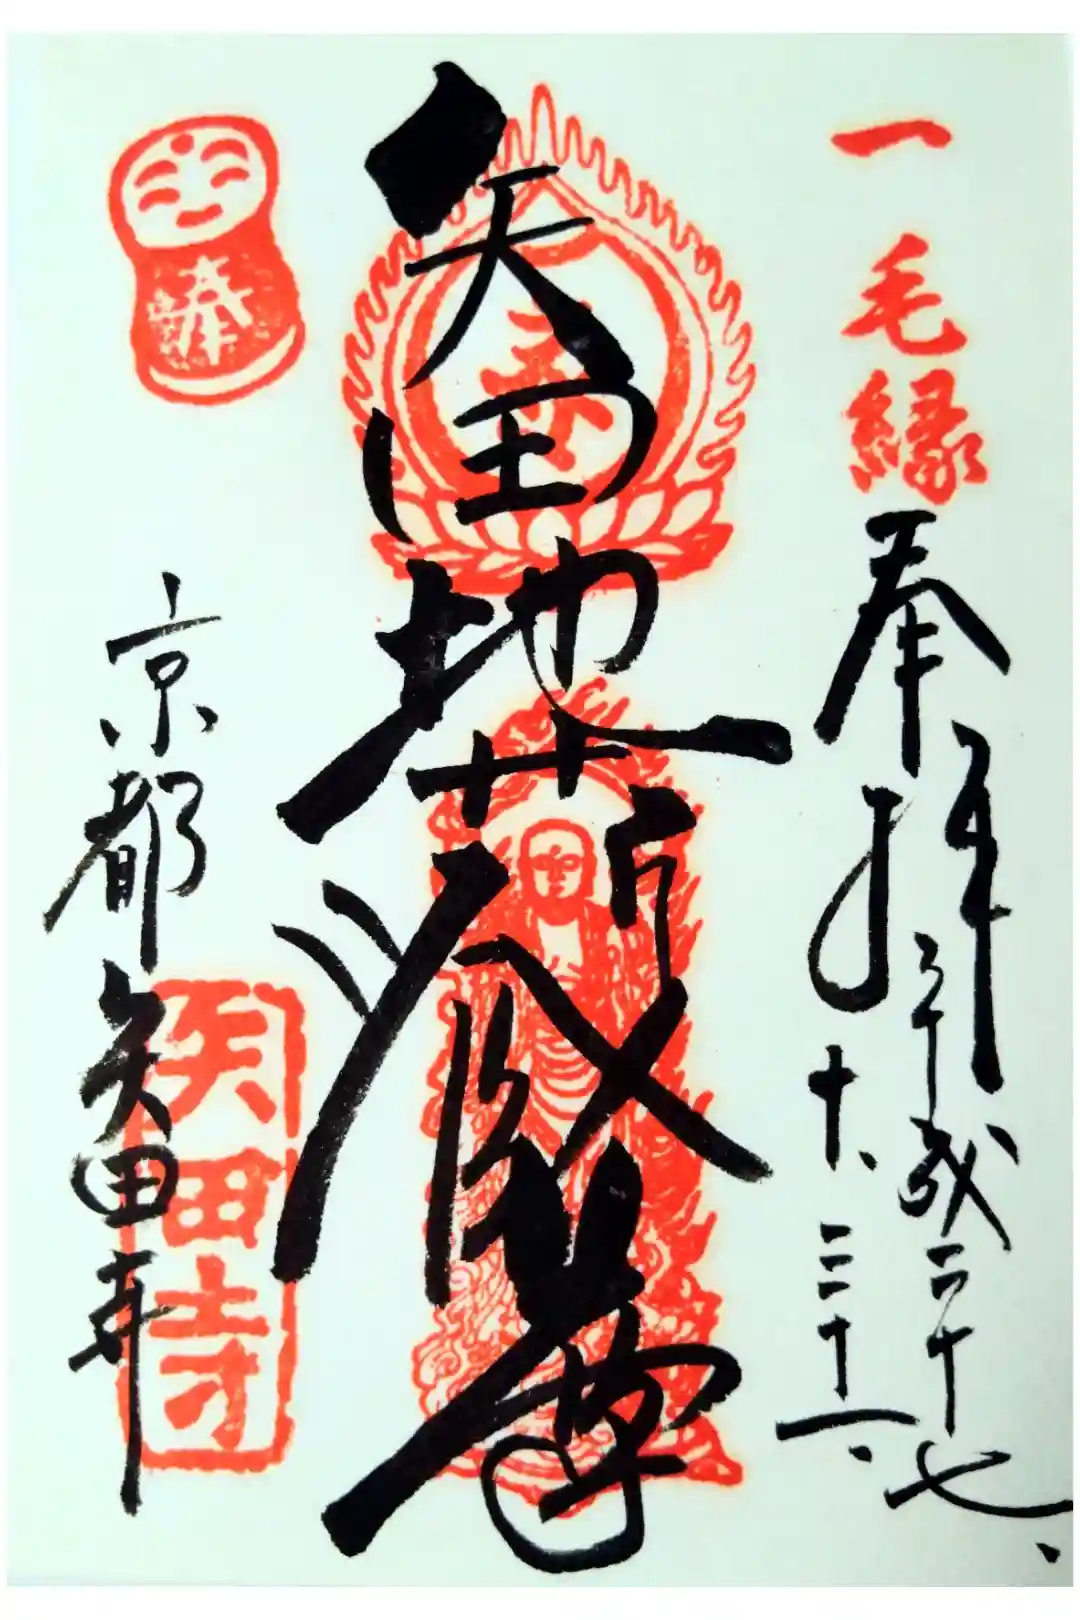 一毛縁
奉拝
平成二十七、
十、二十一、
矢田地蔵尊
奉
京都矢田寺
矢田寺